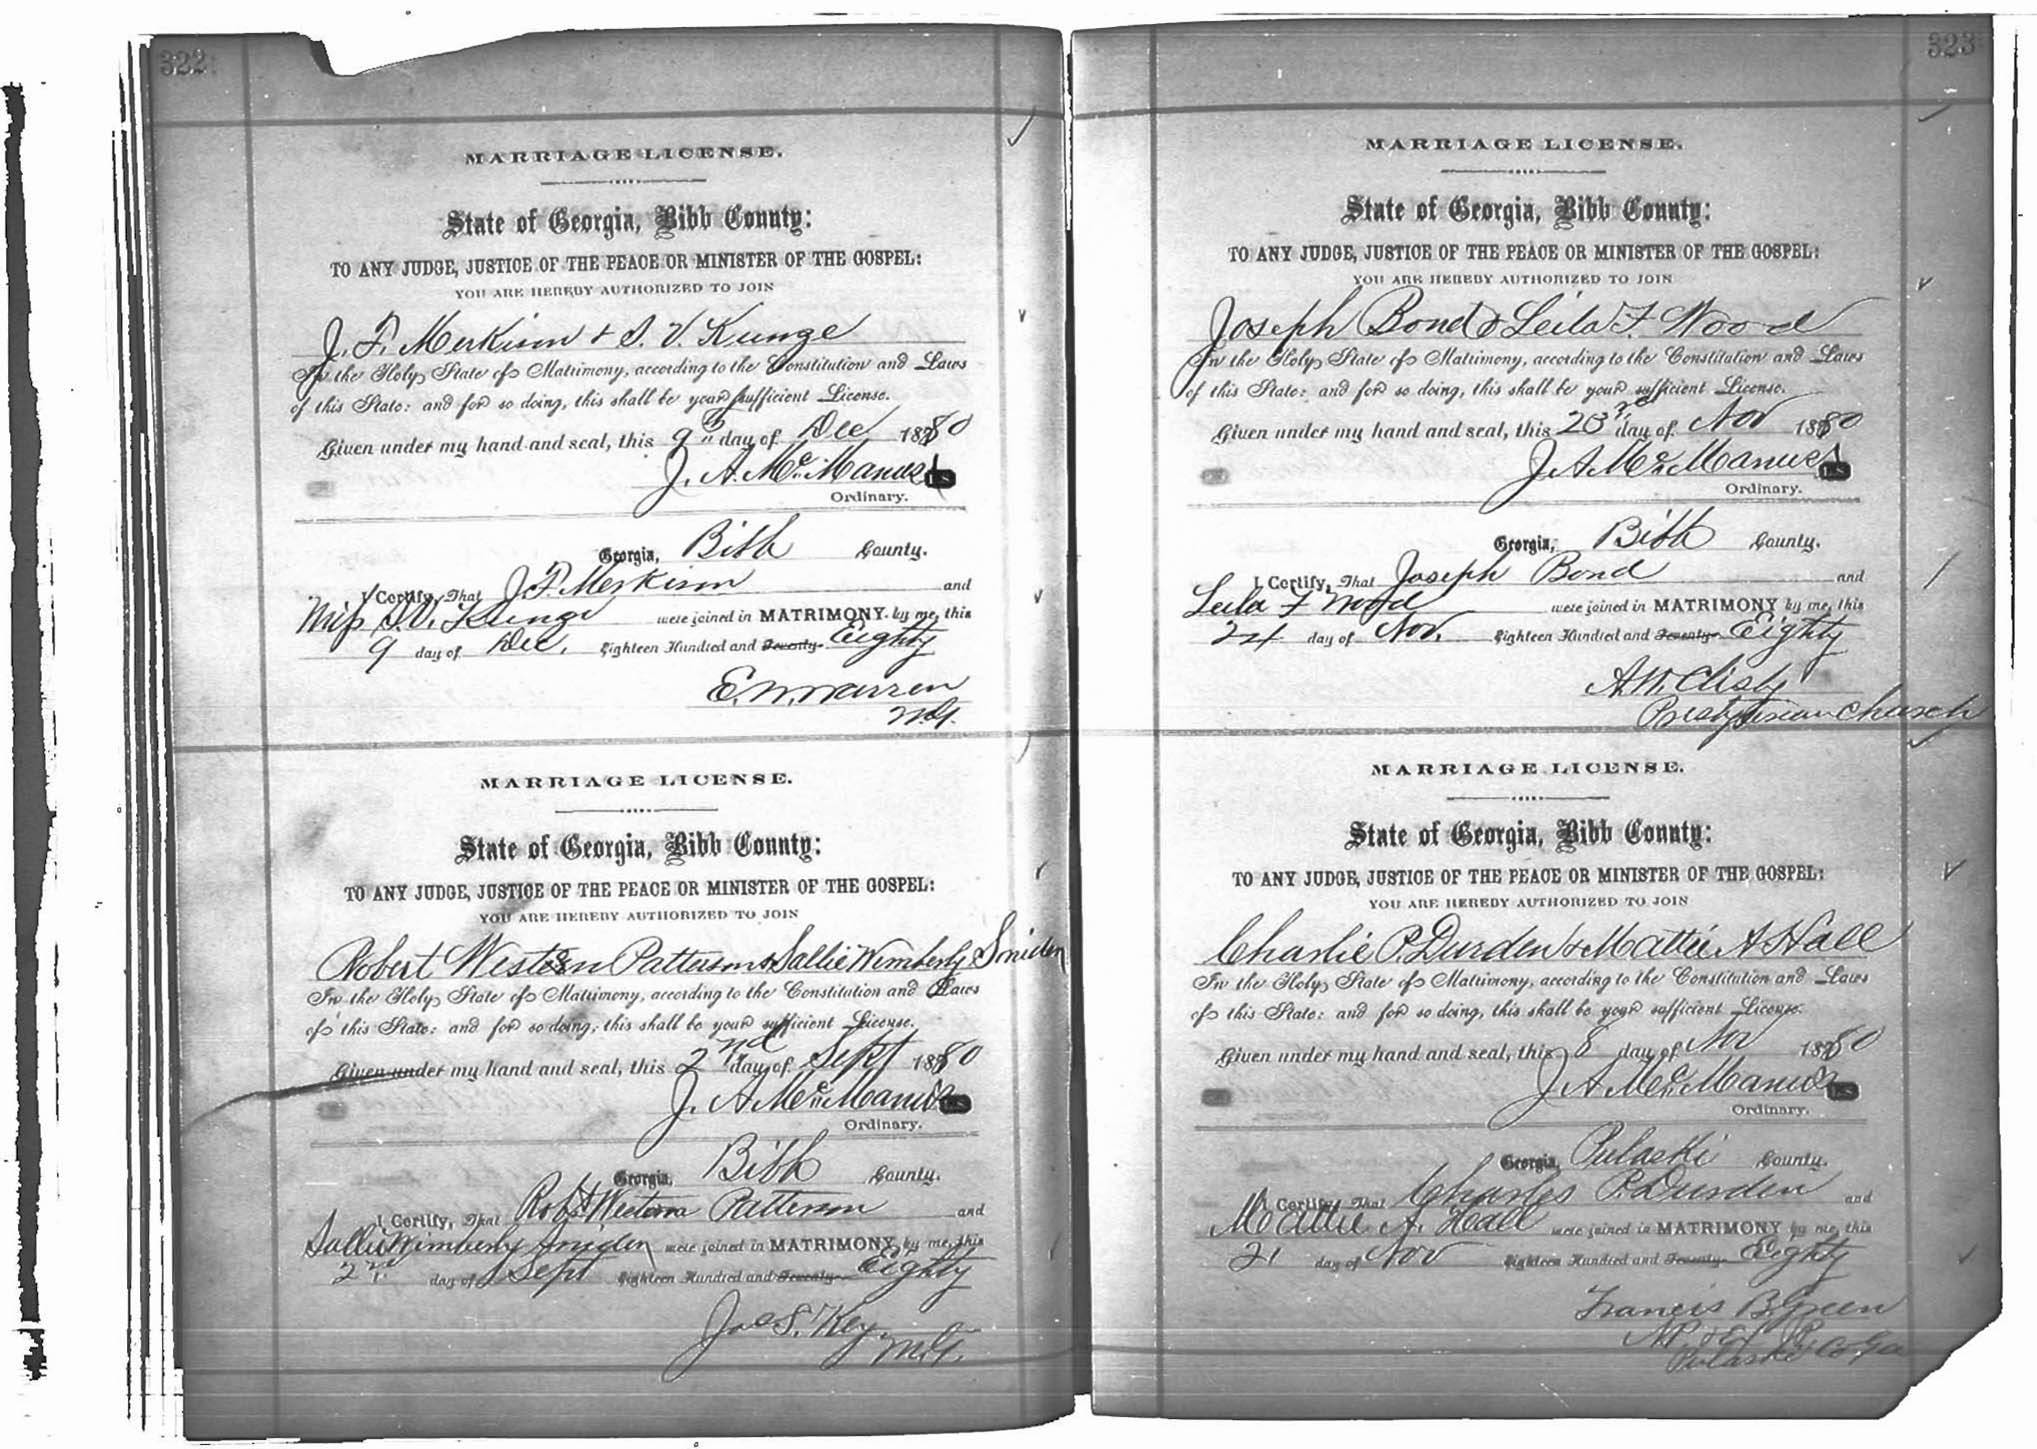 322
MARRIAGE LICENSE.
State of Georgia, Bibb County:
TO ANY JUDGE, JUSTICE OF THE PEACE OR MINISTER OF THE GOSPEL:
YOU ARE HEREBY AUTHORIZED TO JOIN
J. F. Merkison & S. V. Kunge
In the Holy State of Matrimony, according to the Constitution and Laws
of this State: and for so doing, this shall be your sufficient License.
Given under my hand and seal, this 9th day of Dec 1880
J. A. McManus LS
Ordinary.
Georgia, Bibb County.
I Certify, That J. F. Merkison and
Miss S. V. Kunge were joined in MATRIMONY by me, this
9 day of Dec. Eighteen Hundred and Seventy Eighty
E. W. Warren
M.G.
MARRIAGE LICENSE.
State of Georgia, Bibb County:
TO ANY JUDGE, JUSTICE OF THE PEACE OR MINISTER OF THE GOSPEL:
YOU ARE HEREBY AUTHORIZED TO JOIN
Robert Western Patterson & Sallie Wimberly Sniden
In the Holy State of Matrimony, according to the Constitution and Laws
of this State: and for so doing, this shall be your sufficient License.
Given under my hand and seal, this 2nd day of Sept 1880
J. A. McManus LS
Ordinary.
Georgia, Bibb County.
I Certify, That Robt Western Patterson and
Sallie Wimberly Sniden were joined in MATRIMONY by me, this
2nd day of Sept Eighteen Hundred and Seventy Eighty
Jos. S. Key
M.G.
323
MARRIAGE LICENSE.
State of Georgia, Bibb County:
TO ANY JUDGE, JUSTICE OF THE PEACE OR MINISTER OF THE GOSPEL:
YOU ARE HEREBY AUTHORIZED TO JOIN
Joseph Bond & Leila F. Wood
In the Holy State of Matrimony, according to the Constitution and Laws
of this State: and for so doing, this shall be your sufficient License.
Given under my hand and seal, this 23rd day of Nov 1880
J A McManus LS
Ordinary.
Georgia, Bibb County.
I Certify, That Joseph Bond and
Leila F Wood were joined in MATRIMONY by me, this
24 day of Nov. Eighteen Hundred and Seventy Eighty
A. W. Clisby
Presbyterian Church
MARRIAGE LICENSE.
State of Georgia, Bibb County:
TO ANY JUDGE, JUSTICE OF THE PEACE OR MINISTER OF THE GOSPEL:
YOU ARE HEREBY AUTHORIZED TO JOIN
Charlie P. Durden & Mattie A Hall
In the Holy State of Matrimony, according to the Constitution and Laws
of this State: and for so doing, this shall be your sufficient License.
Given under my hand and seal, this 8 day of Nov 1880
J A McManus LS
Ordinary.
Georgia, Pulaski County.
I Certify, That Charles P. Durden and
Mattie A. Hall were joined in MATRIMONY by me, this
21 day of Nov Eighteen Hundred and Seventy Eighty
Francis B. Green
Pulaski Co Ga